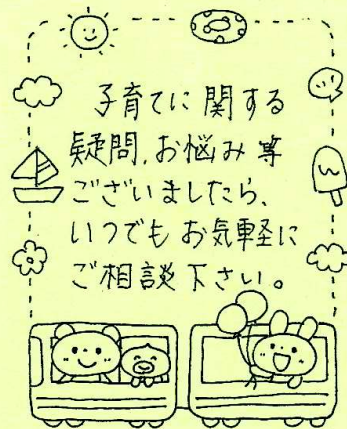 子育てに関する
疑問、お悩み等
ございましたら、
いつでもお気軽に
ご相談下さい。